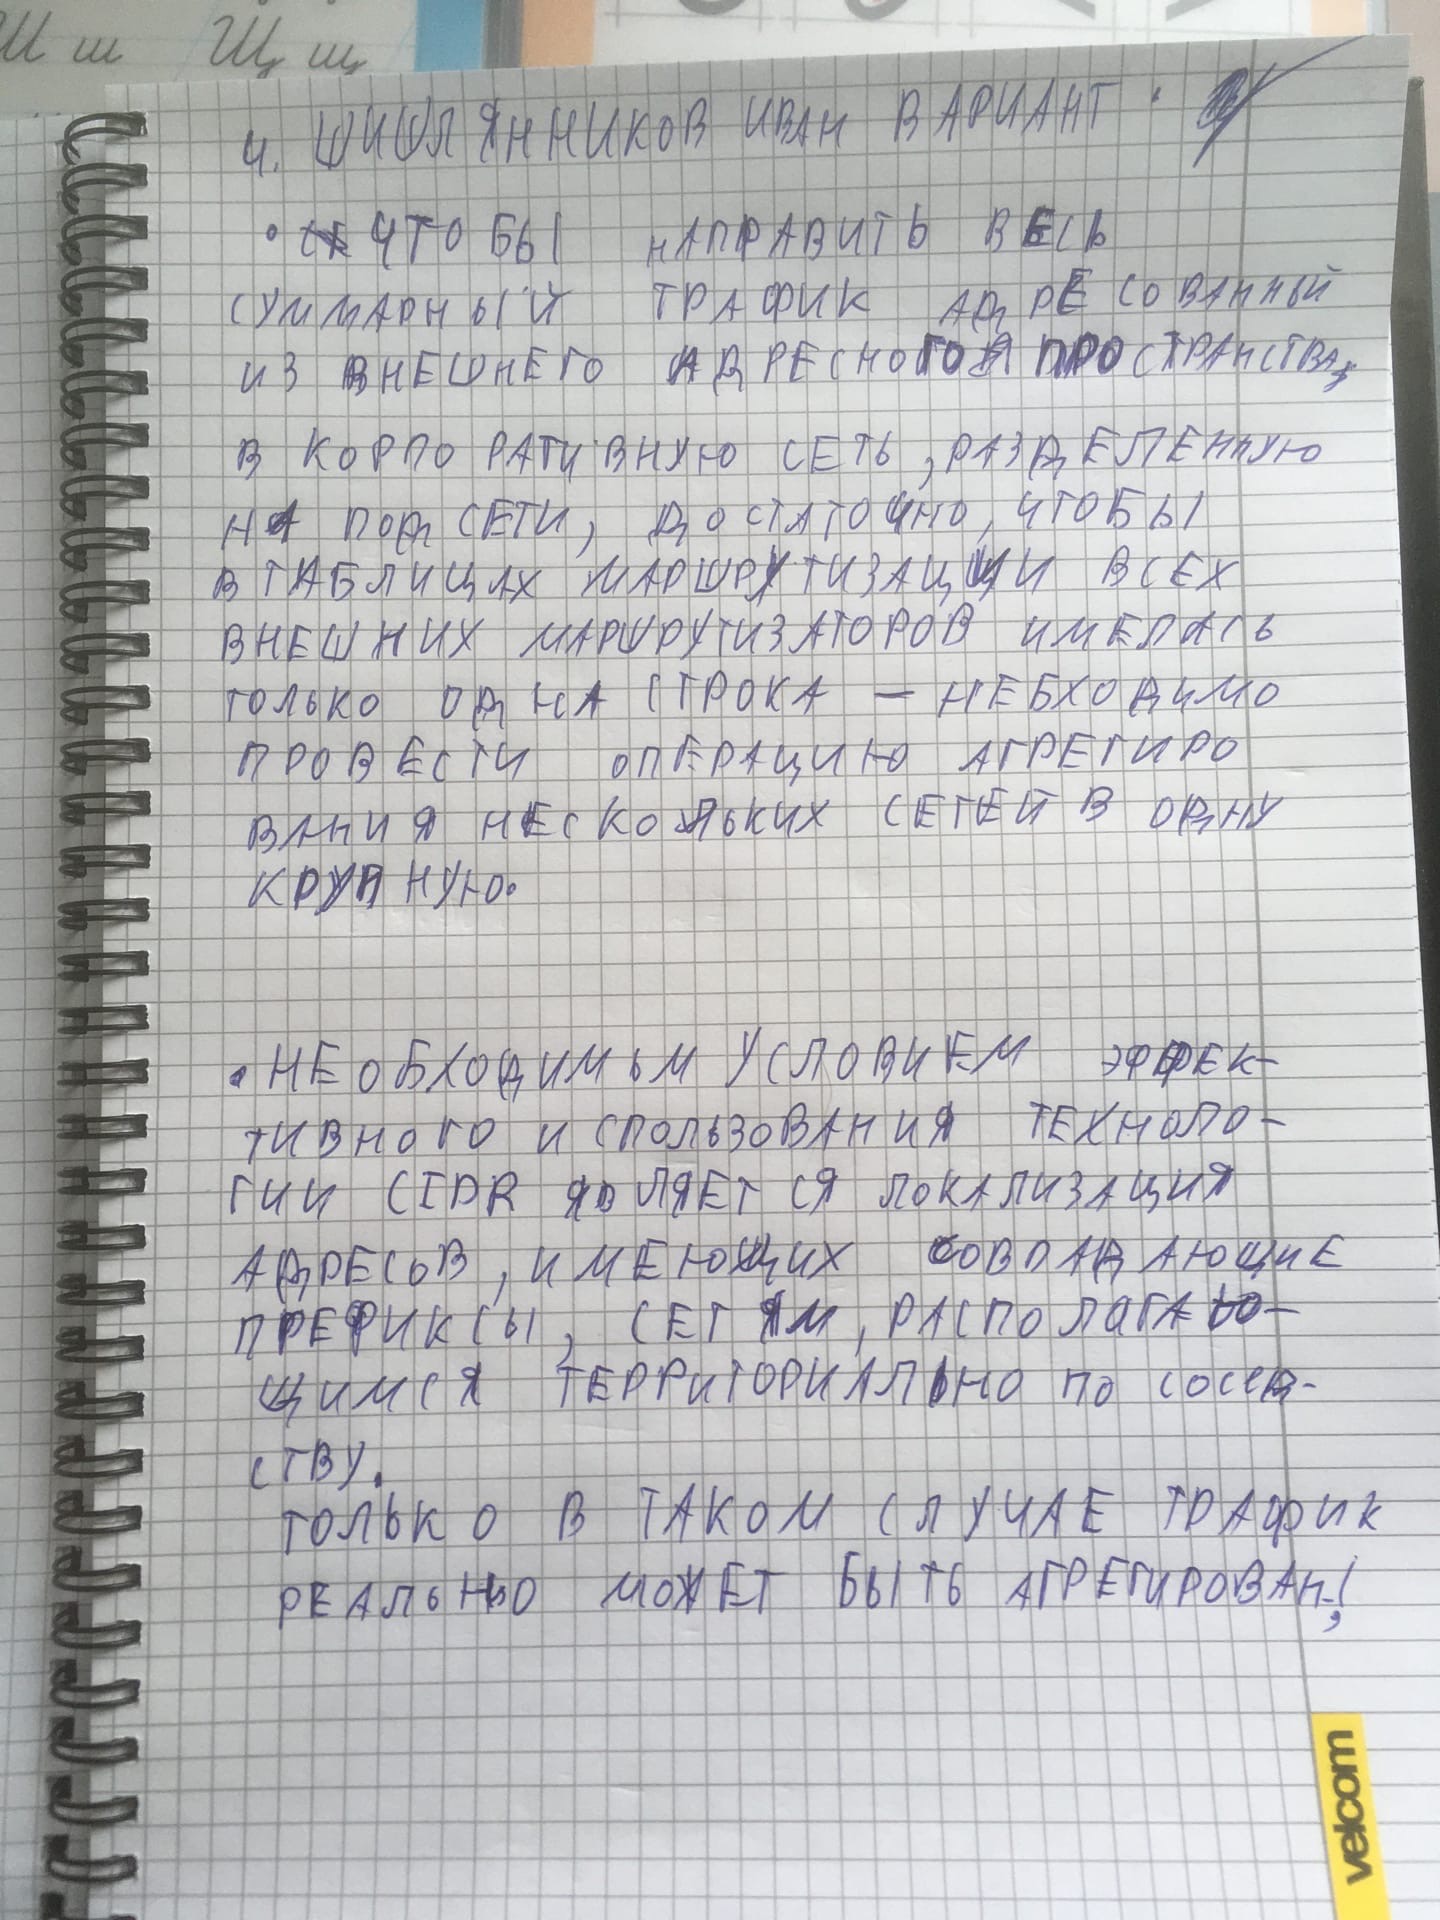 Ш ш Щ щ
4. ШИШЛЯННИКОВ ИВАН ВАРИАНТ
• ЧТОБЫ НАПРАВИТЬ ВЕСЬ
СУММАРНЫЙ ТРАФИК АДРЕСОВАННЫЙ
ИЗ ВНЕШНЕГО АДРЕСНОГО ПРОСТРАНСТВА,
В КОРПОРАТИВНУЮ СЕТЬ, РАЗДЕЛЕННУЮ
НА ПОДСЕТИ, ДОСТАТОЧНО, ЧТОБЫ
В ТАБЛИЦАХ МАРШРУТИЗАЦИИ ВСЕХ
ВНЕШНИХ МАРШРУТИЗАТОРОВ ИМЕЛАСЬ
ТОЛЬКО ОДНА СТРОКА – НЕБХОДИМО
ПРОВЕСТИ ОПЕРАЦИЮ АГРЕГИРО
ВАНИЯ НЕСКОЛЬКИХ СЕТЕЙ В ОДНУ
КРУПНУЮ.
• НЕОБХОДИМЫМ УСЛОВИЕМ ЭФФЕК-
ТИВНОГО ИСПОЛЬЗОВАНИЯ ТЕХНОЛО-
ГИИ CIDR ЯВЛЯЕТСЯ ЛОКАЛИЗАЦИЯ
АДРЕСОВ, ИМЕЮЩИХ СОВПАДАЮЩИЕ
ПРЕФИКСЫ, СЕТЯМ, РАСПОЛАГАЮ-
ЩИМСЯ ТЕРРИТОРИАЛЬНО ПО СОСЕД-
СТВУ.
ТОЛЬКО В ТАКОМ СЛУЧАЕ ТРАФИК
РЕАЛЬНО МОЖЕТ БЫТЬ АГРЕГИРОВАН!
velcom